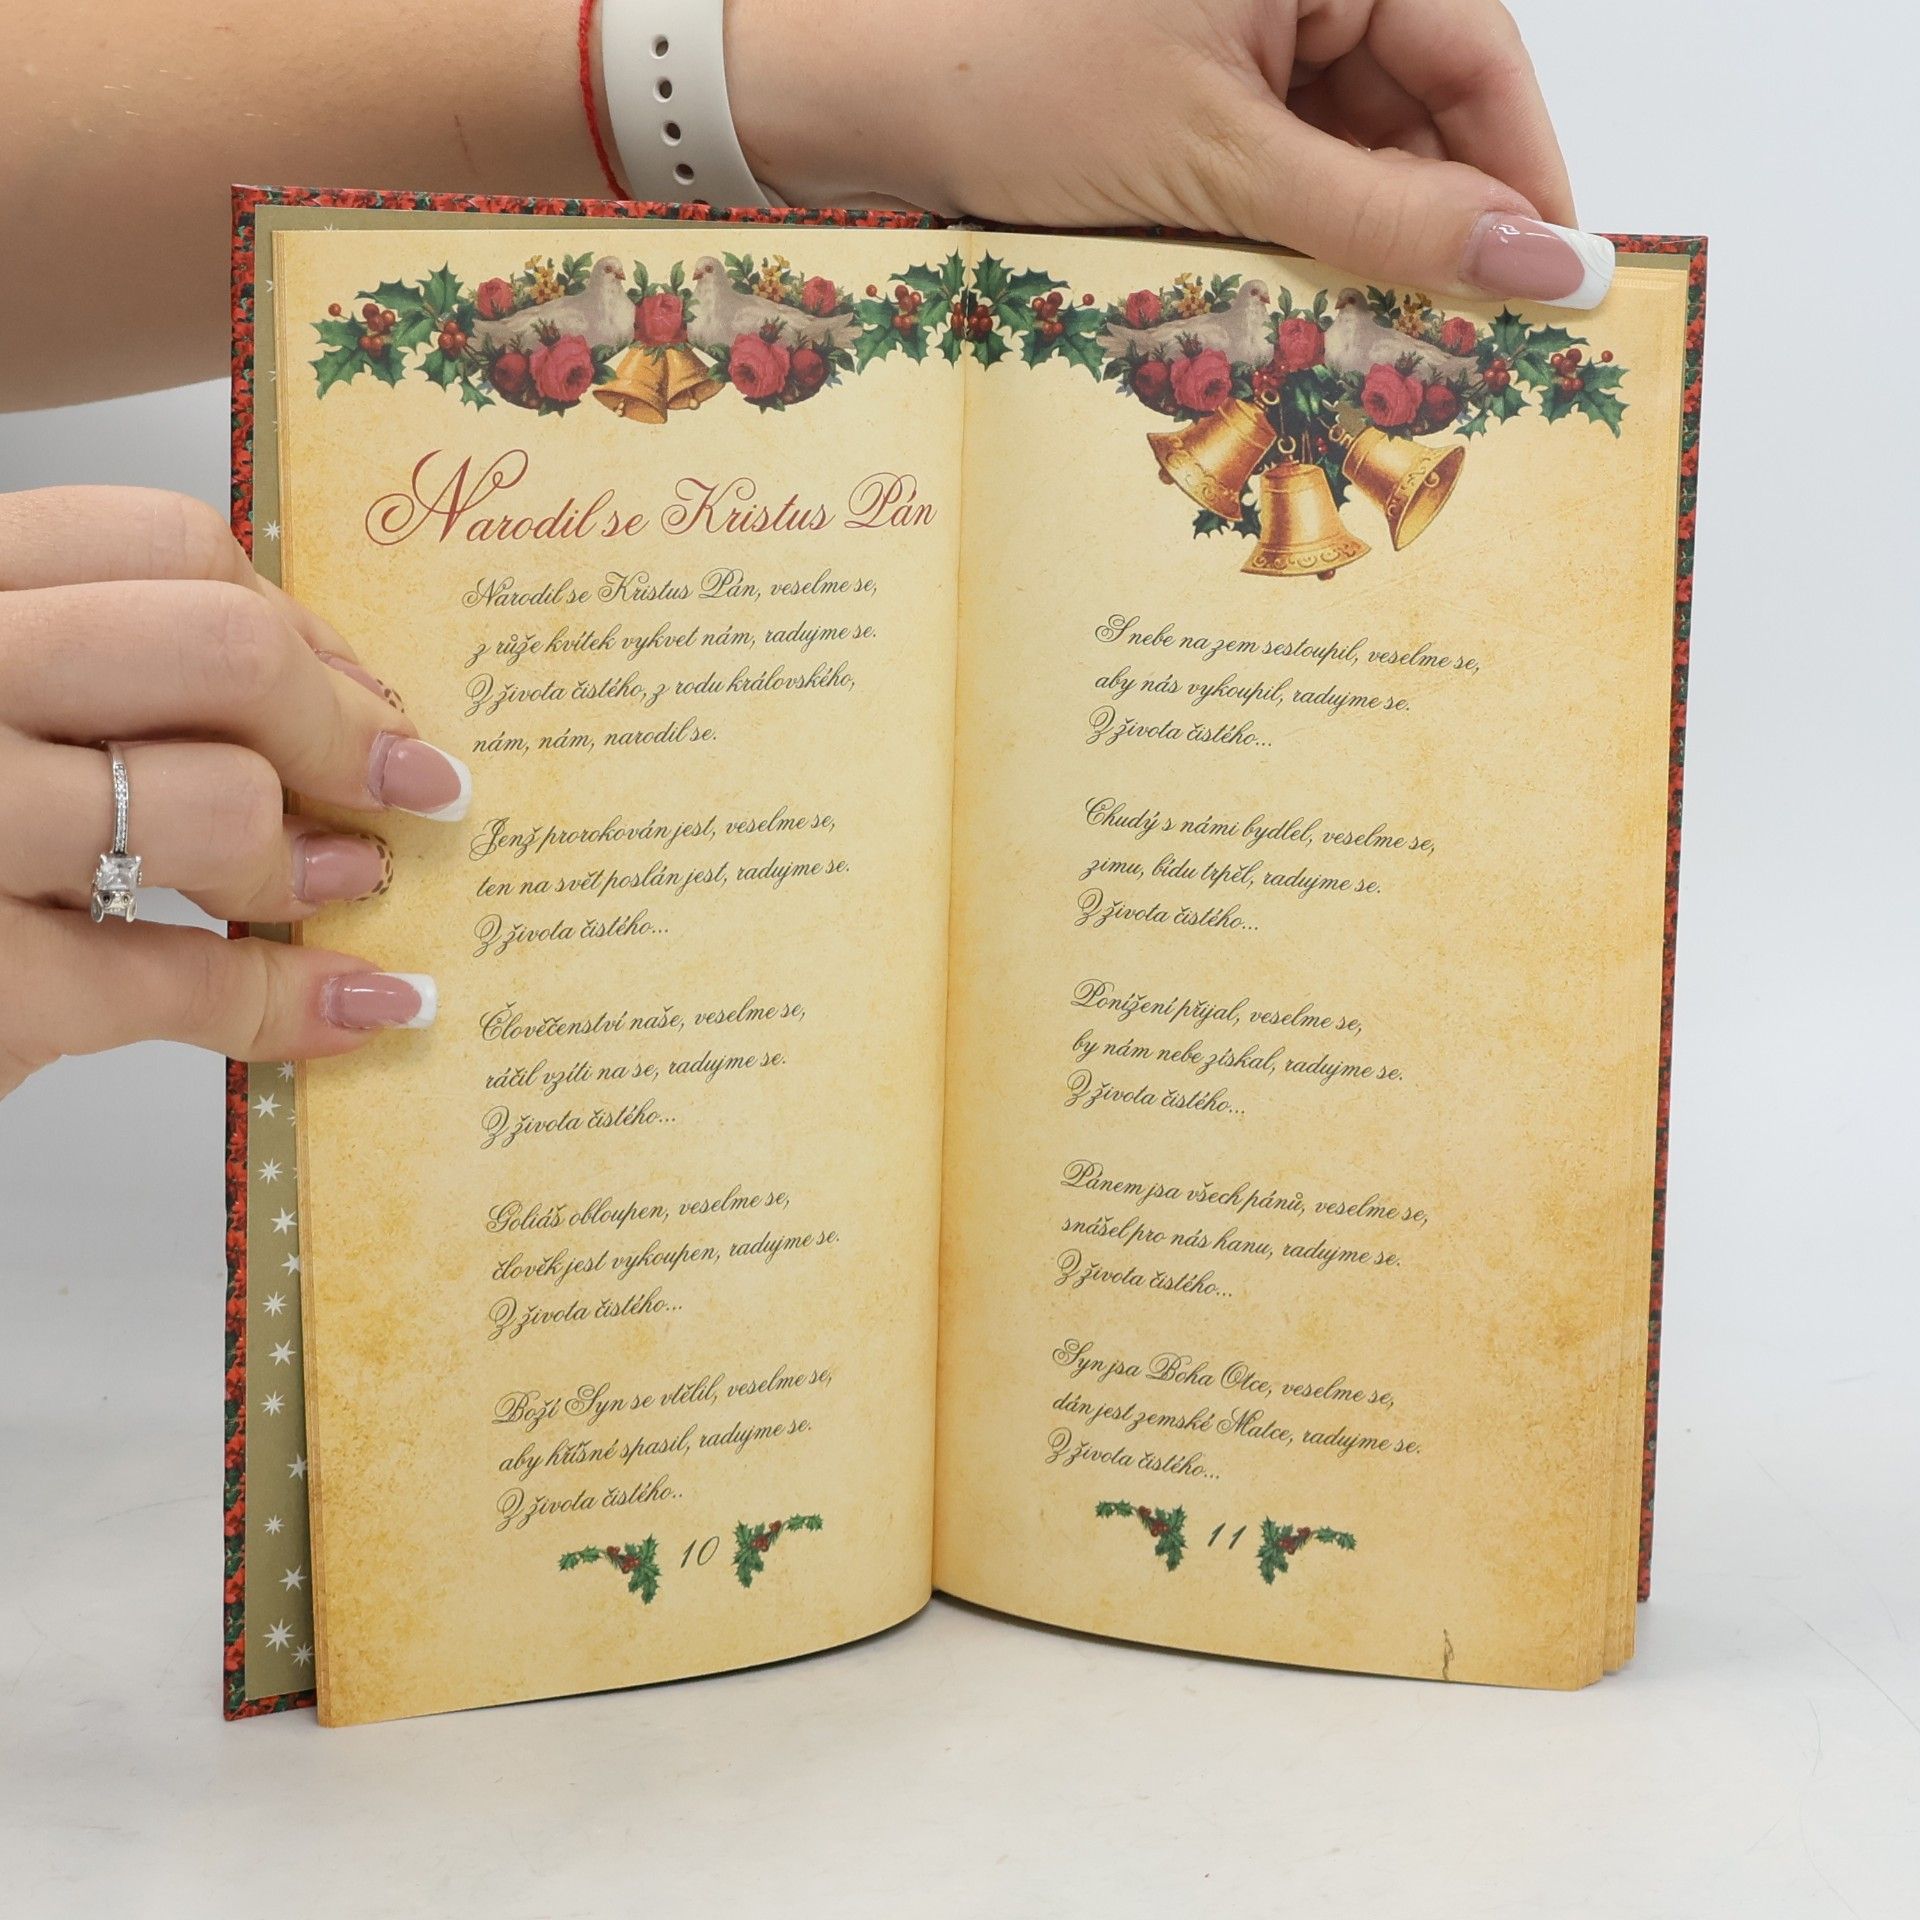 Narodil se Kristus Pán
Narodil se Kristus Pán, veselme se,
z růže kvítek vykvet nám, radujme se.
Z života čistého, z rodu královského,
nám, nám, narodil se.
Jenž prorokován jest, veselme se,
ten na svět poslán jest, radujme se.
Z života čistého...
Člověčenství naše, veselme se,
ráčil vzíti na se, radujme se.
Z života čistého...
Goliáš obloupen, veselme se,
člověk jest vykoupen, radujme se.
Z života čistého...
Boží Syn se vtělil, veselme se,
aby hříšné spasil, radujme se.
Z života čistého..
10
S nebe na zem sestoupil, veselme se,
aby nás vykoupil, radujme se.
Z života čistého...
Chudý s námi bydlel, veselme se,
zimu, bídu trpěl, radujme se.
Z života čistého...
Ponížení přijal, veselme se,
by nám nebe získal, radujme se.
Z života čistého...
Pánem jsa všech pánů, veselme se,
snášel pro nás hanu, radujme se.
Z života čistého...
Syn jsa Boha Otce, veselme se,
dán jest zemské Matce, radujme se.
Z života čistého...
11